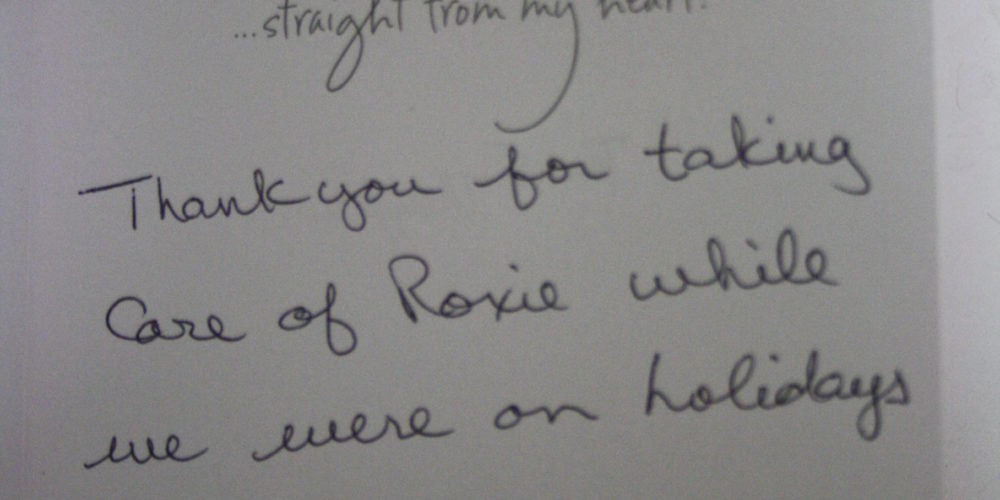 ...straight from my heart.
Thank you for taking
Care of Roxie while
we were on holidays